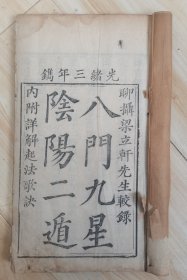 光緒三年鐫
聊攝梁立軒先生較錄
八門九星
陰陽二遁
內附詳解起法歌訣